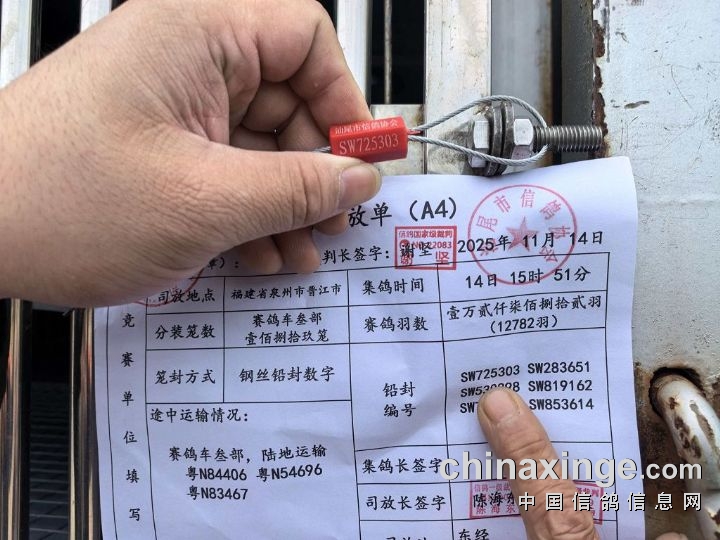 汕尾市信鸽协会
SW725303
放单（A4）
尾市信鸽协会
信鸽国家级裁判
判长签字：谢坚 2025年 11月 14日
章）：
司放地点 福建省泉州市晋江市 集鸽时间 14日 15时 51分
分装笼数 赛鸽车叁部 壹佰捌拾玖笼 赛鸽羽数 壹万贰仟柒佰捌拾贰羽
(12782羽)
笼封方式 钢丝铅封数字 铅封编号
SW725303 SW283651
SW819162
SW853614
竞赛单位填写
途中运输情况：
赛鸽车叁部，陆地运输
粤N84406 粤N54696
粤N83467
集鸽长签字
司放长签字 陈海东
东经
chinaxinge.com
中国信鸽信息网